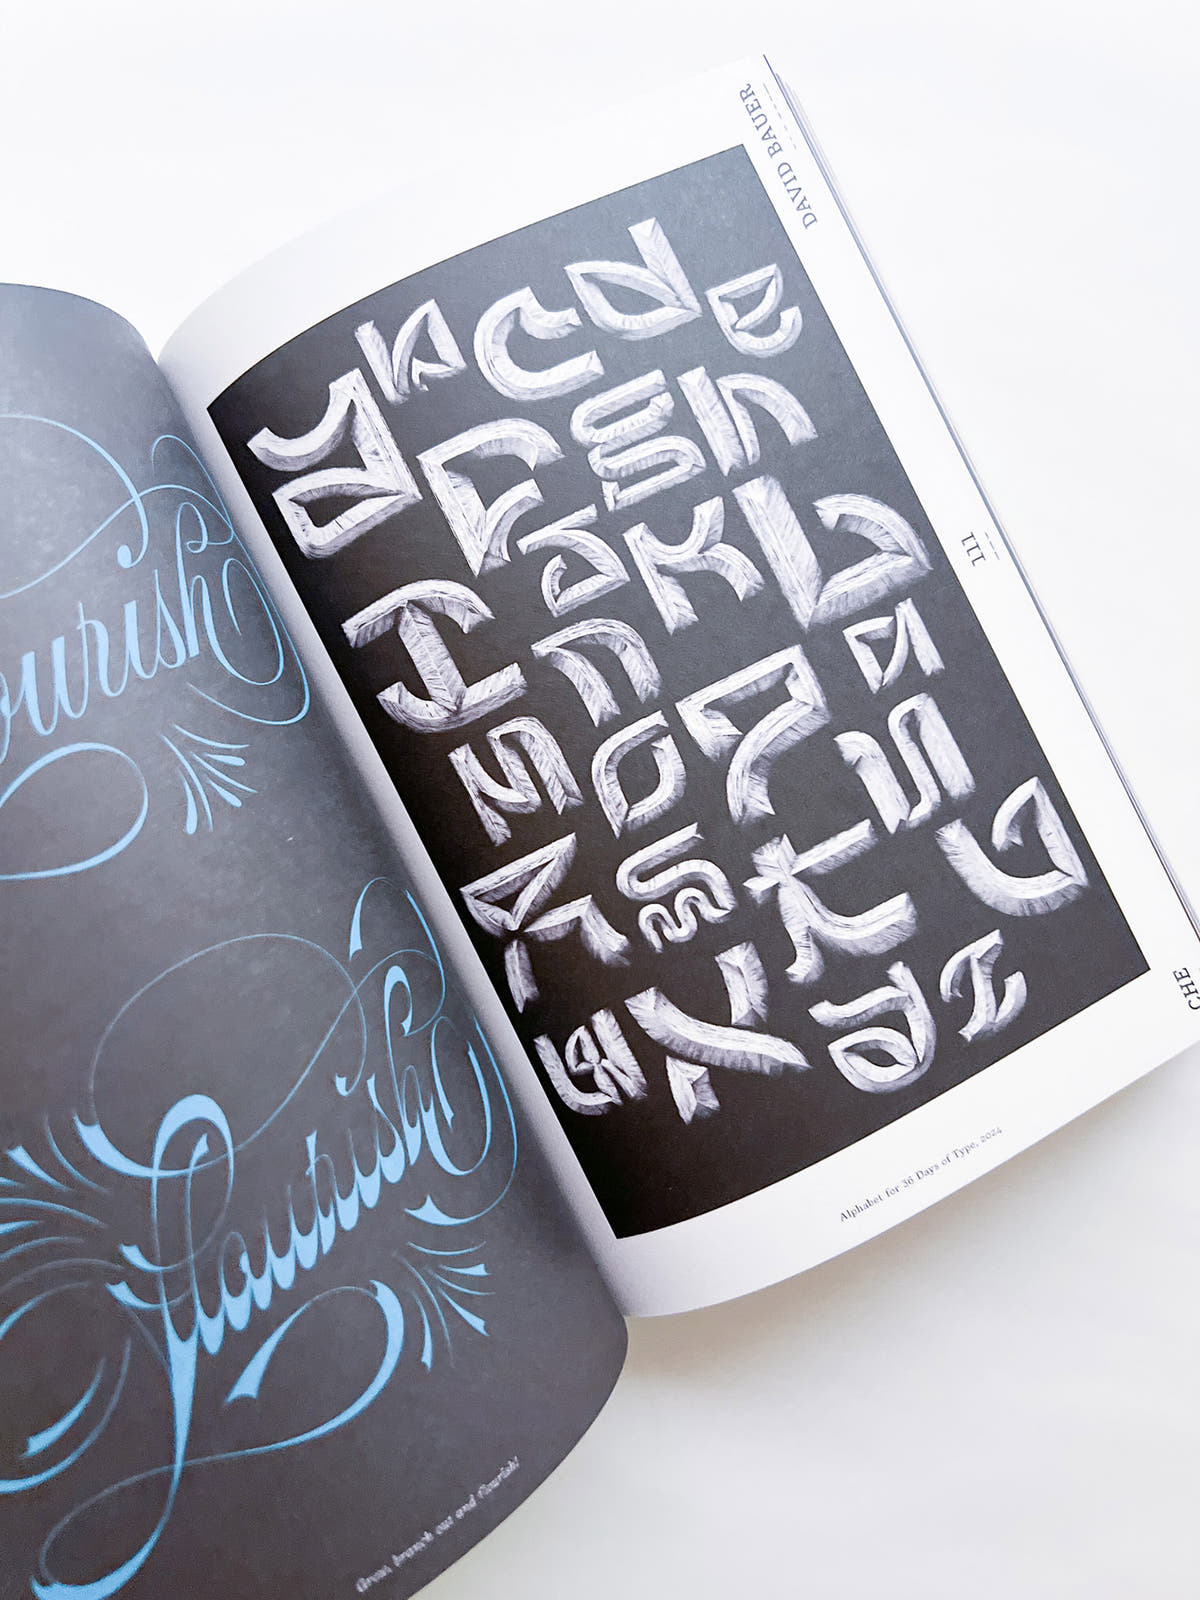 ourish
flourish
Grow, branch out and flourish!
DAVID BAUER
111
CHE
a b c d e
f g h
i j k l
m n o p q
r s t u v
w x y z
Alphabet for 36 Days of Type, 2024